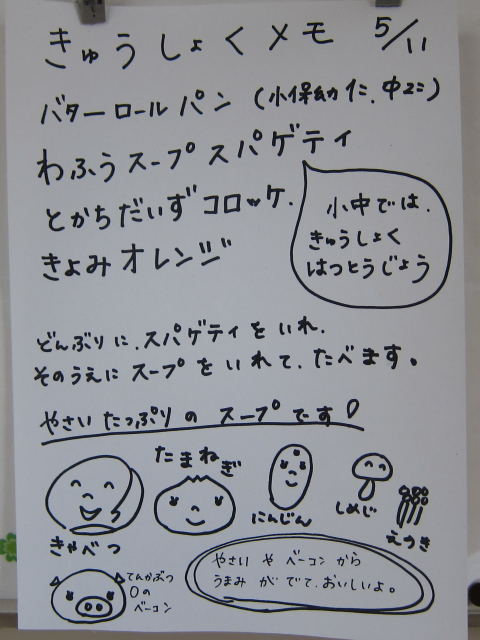 きゅうしょくメモ 5/11
バターロールパン (小保幼に、中2こ)
わふうスープスパゲティ
とかちだいずコロッケ.
きよみオレンジ
小中では、
きゅうしょく
はつとうじょう
どんぶりに、スパゲティをいれ、
そのうえにスープをいれて、たべます。
やさいたっぷりのスープです!
たまねぎ
にんじん
しめじ
えのき
きゃべつ
てんかぶつ
0の
ベーコン
やさいやベーコンから
うまみがでて、おいしいよ。